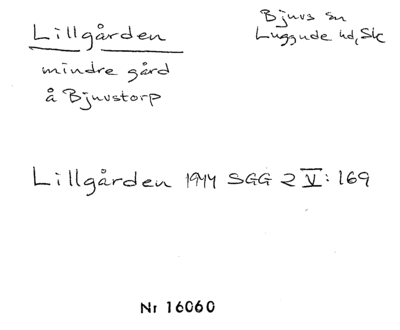 Lillgården
Bjuvs sn
Luggude hd, Sk
mindre gård
å Bjuvstorp
Lillgården 1944 SGG 2 V: 169
Nr 16060